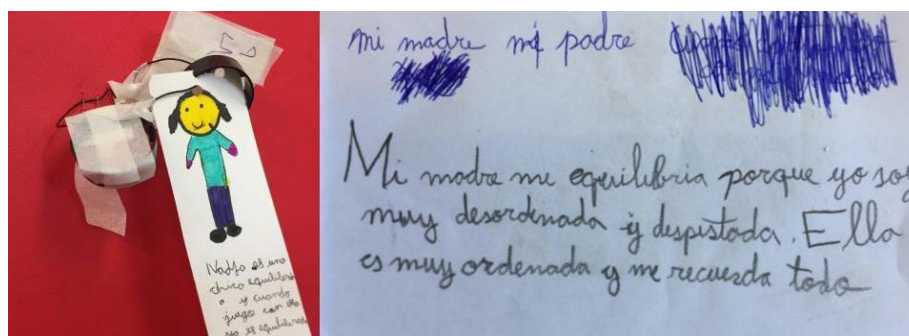 Nadja es una
chica equilibrad
a y cuando
juego con ella
yo es equilibrada
mi madre mi padre
Mi madre me equilibria porque yo soy
muy desordenada y despistada. Ella
es muy ordenada y me recuerda todo